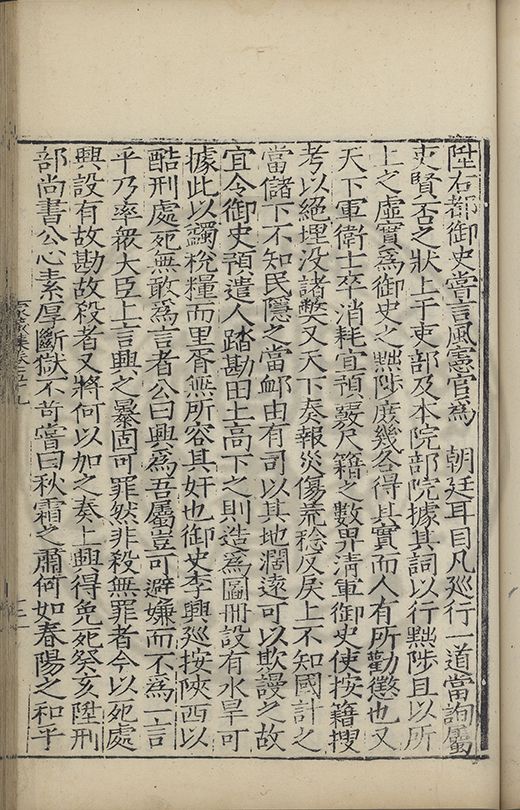 陞右都御史嘗言風憲官爲　朝廷耳目凡巡行一道當詢屬
吏賢否之狀上于吏部及本院部院據其詞以行黜陟且以所
上之虛實爲御史之黜陟庶幾各得其實而人有所勸懲也又
天下軍衛士卒消耗宜預發尺籍之數畀清軍御史使按籍搜
考以絕埋没諸獘又天下奏報災傷荒稔反戾上不知國計之
當儲下不知民隱之當䘏由有司以其地濶遠可以欺謾之故
宜令御史預遣人踏勘田土高下之則造爲圖冊設有水旱可
據此以蠲稅糧而里胥無所容其奸也御史李興巡按陝西以
酷刑處死無敢爲言者公曰興爲吾屬豈可避嫌而不爲一言
乎乃率衆大臣上言興之暴固可罪然非殺無罪者今以死處
興設有故勘故殺者又將何以加之奏上興得免死癸亥陞刑
部尚書公心素厚斷獄不苛嘗曰秋霜之肅何如春陽之和于